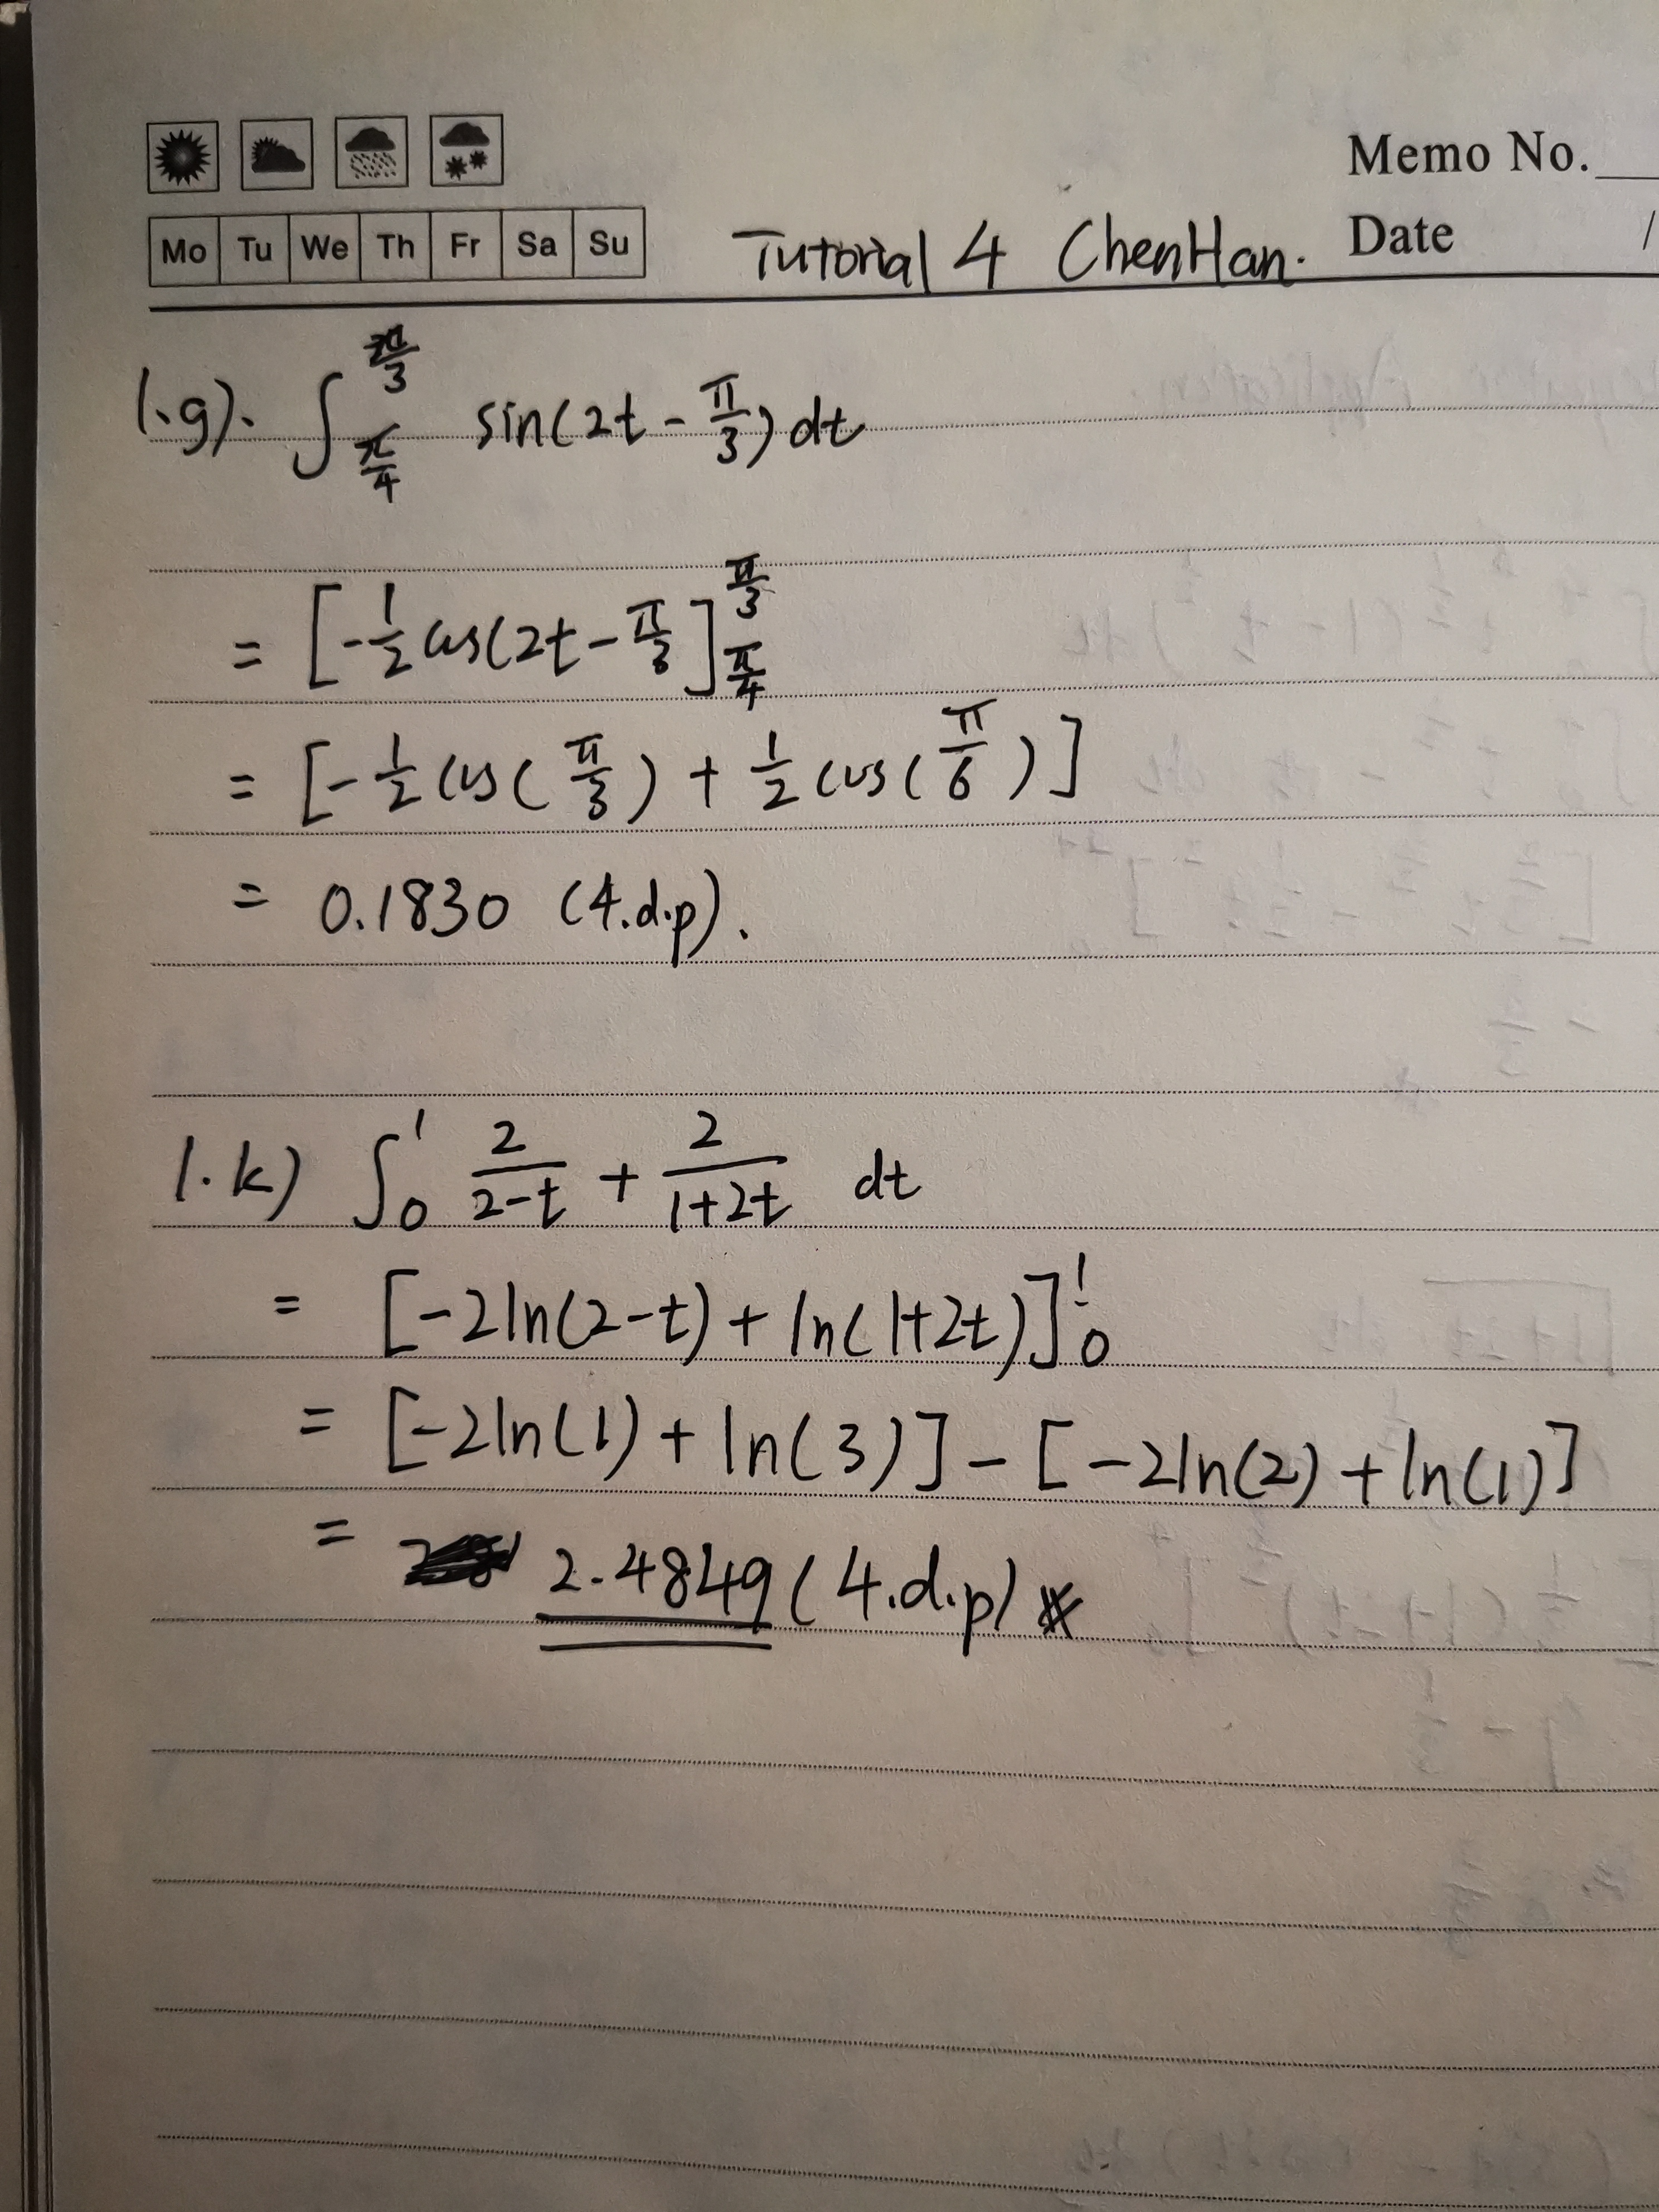 Memo No.
Mo Tu We Th Fr Sa Su
Tutorial 4 ChenHan. Date /
1.g). ∫_{π/4}^{π/3} sin(2t - π/3) dt
= [-1/2 cos(2t - π/3]_{π/4}^{π/3}
= [-1/2 cos(π/3) + 1/2 cos(π/6)]
= 0.1830 (4.d.p).
1.k) ∫_0^1 2/(2-t) + 2/(1+2t) dt
= [-2ln(2-t) + ln(1+2t)]_0^1
= [-2ln(1) + ln(3)] - [-2ln(2) + ln(1)]
= 2.4849 (4.d.p)